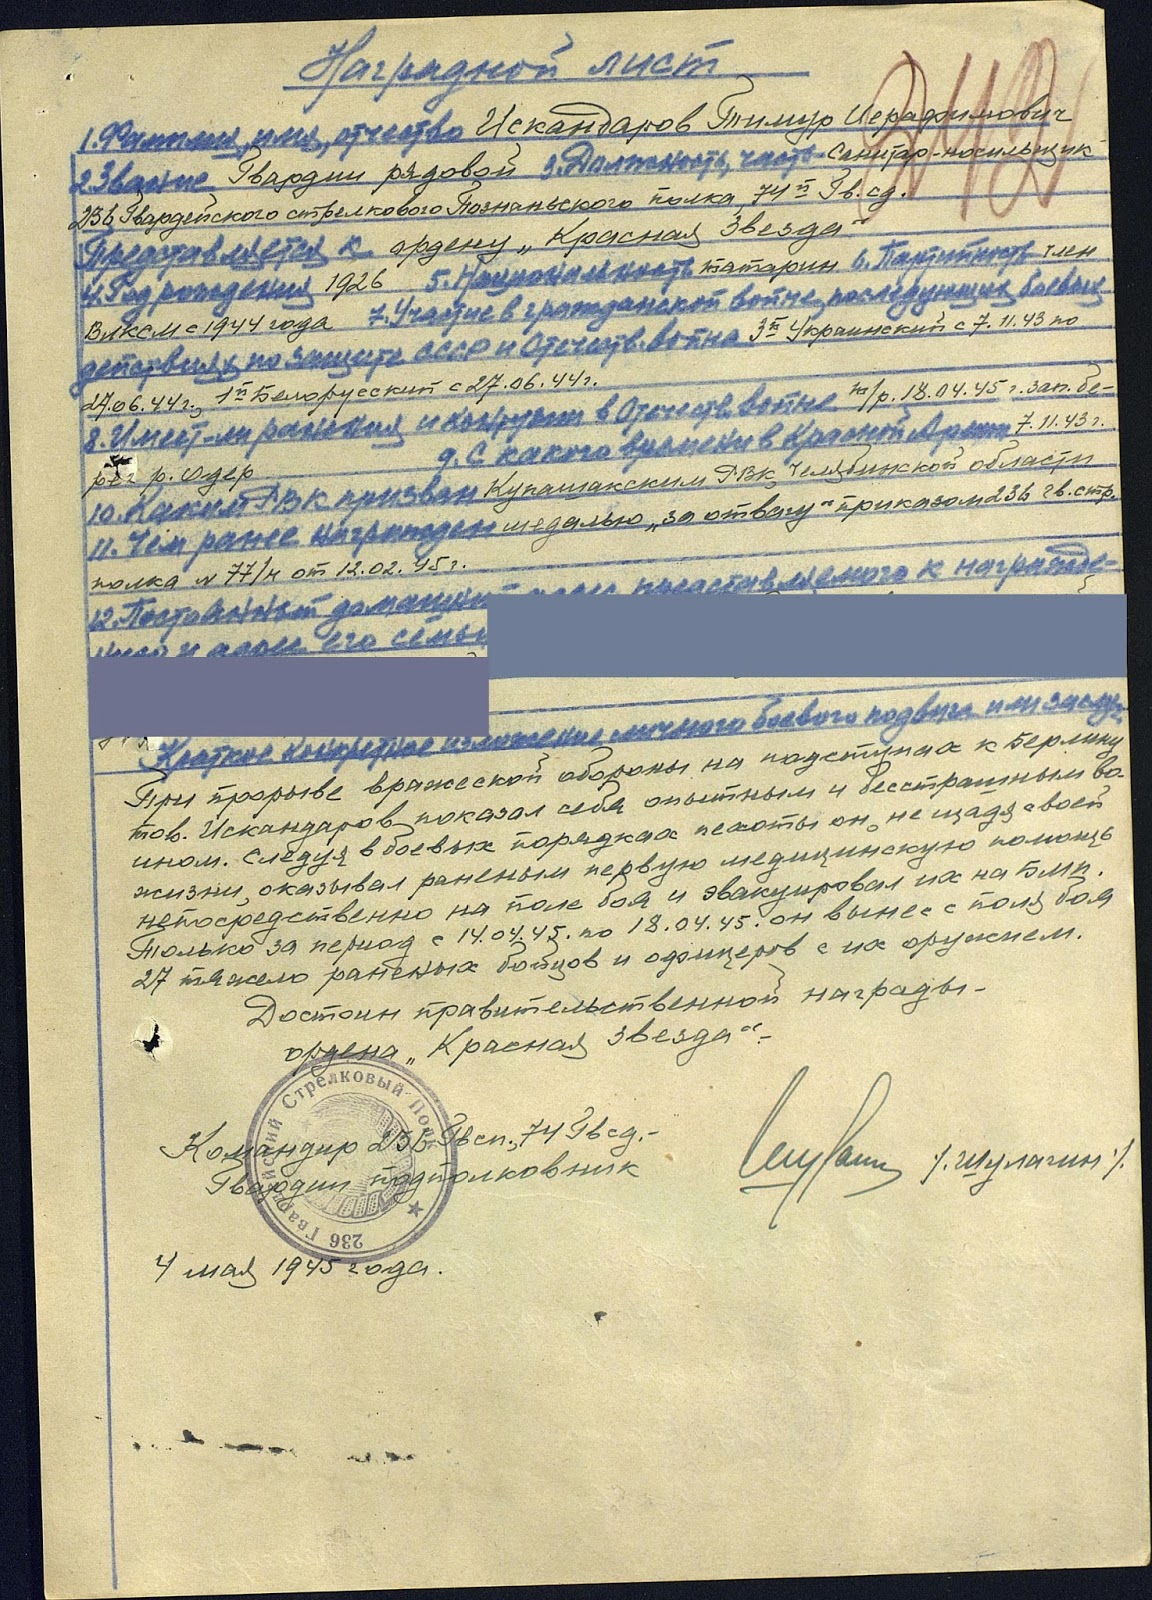 Наградной лист
1. Фамилия, имя, отчество Искандаров Тимур Иерафимович
2. Звание Гвардии рядовой 3. Должность, часть Санитар-носильщик
236 Гвардейского стрелкового Познаньского полка, 74й Гв. сд.
Представляется к ордену „Красная Звезда"
4. Год рождения 1926 5. Национальность татарин 6. Партийность член
ВЛКСМ с 1944 года 7. Участие в гражданской войне, последующих боевых
действиях по защите СССР и Отечеств. войне 3й Украинский с 7.11.43 по
27.06.44 г., 1й Белорусский с 27.06.44г.
8. Имеет-ли ранения и контузии в Отечеств. войне т/р. 18.04.45 г. зап. бе-
рег р. Одер 9. С какого времени в Красной Армии 7.11.43 г.
10. Каким РВК призван Кунашакским РВК, Челябинской области
11. Чем ранее награжден медалью „За отвагу" приказом 236 гв. стр.
полка № 77/н от 12.02.45г.
12. Постоянный домашний адрес представляемого к награжде-
нию и адрес его семьи
Краткое конкретное изложение личного боевого подвига или заслуг
При прорыве вражеской обороны на подступах к Берлину
тов. Искандаров показал себя опытным и бесстрашным во-
ином. Следуя в боевых порядках пехоты он, не щадя своей
жизни, оказывал раненым первую медицинскую помощь
непосредственно на поле боя и эвакуировал их на БМП.
Только за период с 14.04.45. по 18.04.45. он вынес с поля боя
27 тяжело раненых бойцов и офицеров с их оружием.
Достоин правительственной награды-
ордена „Красная Звезда"-
Командир 236 Гвсп., 74 Гвсд.-
Гвардии подполковник /.Шулагин./.
236 Гвардейский Стрелковый Полк
4 мая 1945 года.